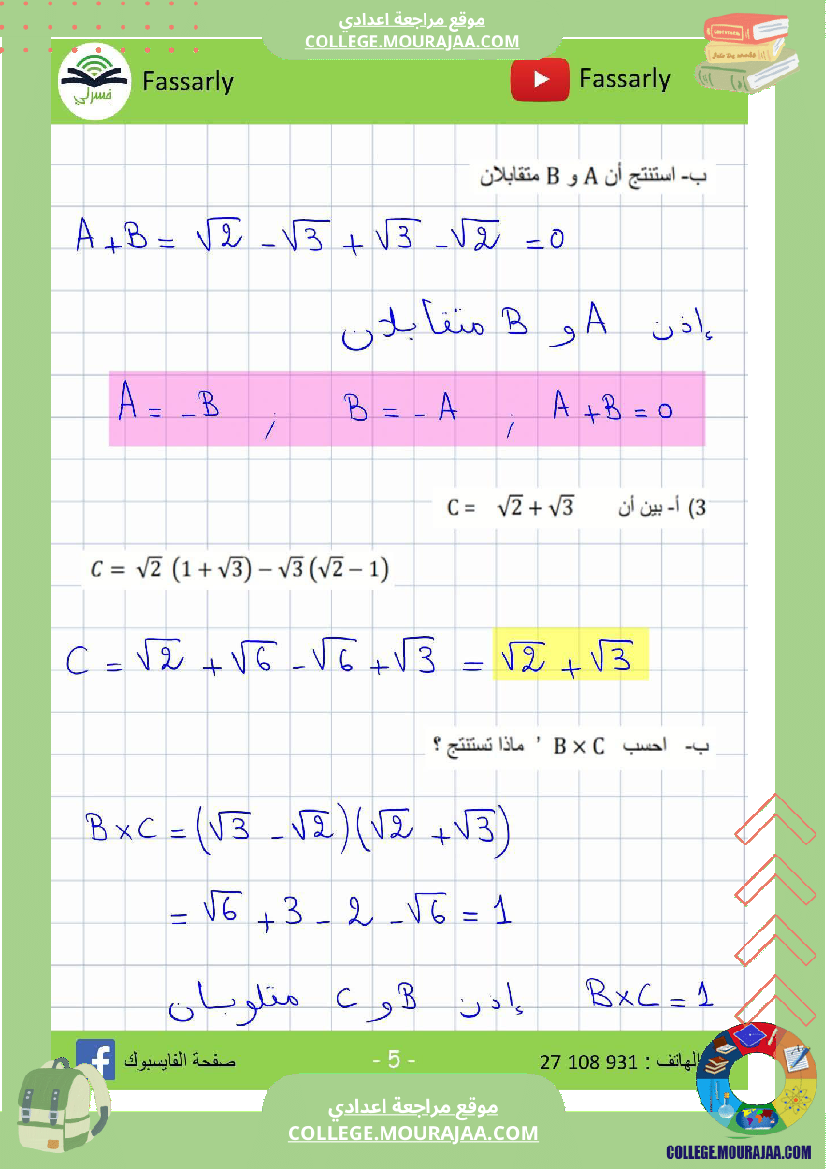 موقع مراجعة اعدادي
COLLEGE.MOURAJAA.COM
فسرلي Fassarly Fassarly
ب- استنتج أن A و B متقابلان
A + B = √2 - √3 + √3 - √2 = 0
إذن A و B متقابلان
A = - B ; B = - A ; A + B = 0
3) أ- بين أن C = √2 + √3
C = √2 (1 + √3) − √3 (√2 − 1)
C = √2 + √6 - √6 + √3 = √2 + √3
ب- احسب B × C ' ماذا تستنتج ؟
B × C = (√3 - √2)(√2 + √3)
= √6 + 3 - 2 - √6 = 1
B × C = 1 إذن B و C مقلوبان
صفحة الفايسبوك - 5 - الهاتف : 27 108 931
موقع مراجعة اعدادي
COLLEGE.MOURAJAA.COM
COLLEGE.MOURAJAA.COM